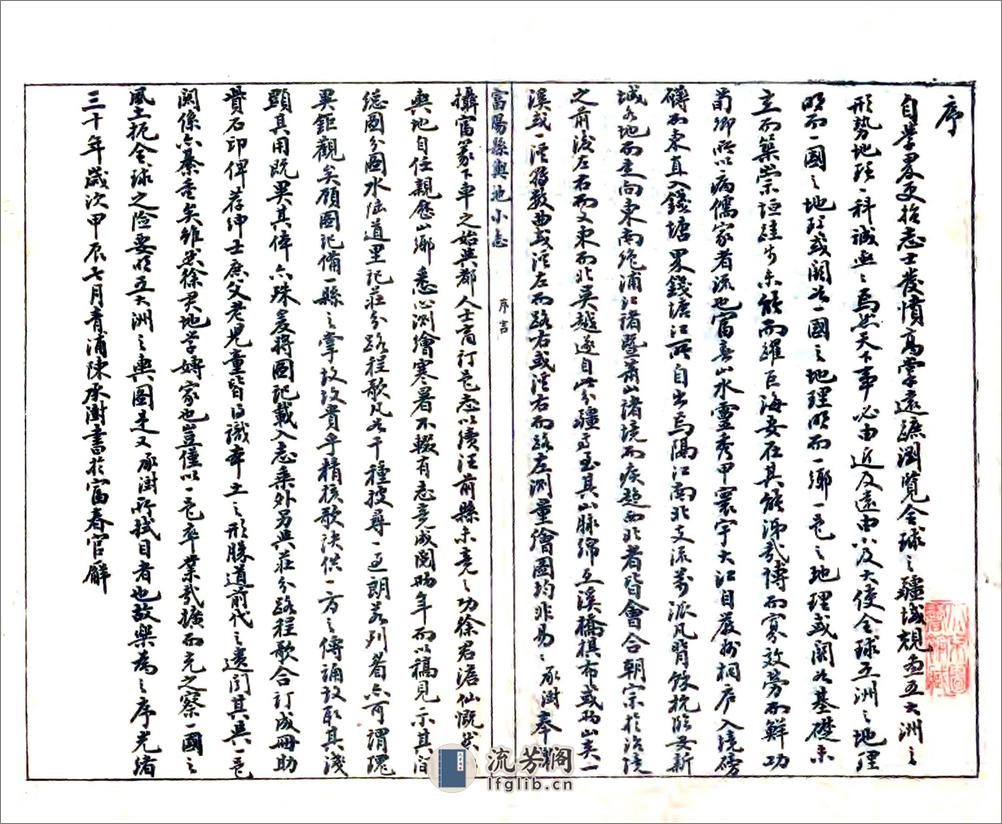 序
自學界更張志士發憤高掌遠蹠瀏覽全球之疆域規畫五大洲之
形勢地理一科誠亟亟焉然天下事必由近及遠由小及大使全球五洲之地理
明而一國之地理或闕如一國之地理明而一鄉一邑之地理或闕如基礎未
立而築崇垣跬步未能而躍巨海妄在其能濟哉博而寡效勞而鮮功
荀卿所以病儒家者流也富春山水靈秀甲寰宇大江自嚴州桐廬入境磅
礴而東直入錢塘界錢塘江所自出焉隔江南北支流萬派凡背餘杭臨安新
城之地而走向東南絶浦江諸暨蕭諸境而疾趨西北者皆會合朝宗於治境
之前後左右而又東而北吳越遂自此分疆焉至其山脈綿亙溪橋棋布或兩山夾一
溪或一溪務數曲或溪左而路右或溪右而路左測量繪圖均非易易承澍奉
富陽縣輿地小志 序言
攝富篆下車之始與都人士商訂邑志以續汪前縣未竟之功徐君澹仙慨然以
輿地自任親歷山鄉悉心測繪寒暑不輟有志竟成閱兩年而以稿見示其間
總圖分圖水陸道里記莊分路程歌凡若干種披尋一過朗若列眉亦可謂瑰
異鉅觀矣顧圖記備一縣之掌故故貴乎精核歌訣供一方之傳誦故取其淺
顯其用既異其體亦殊爰將圖記載入志乘外另與莊分路程歌合訂成冊助
貲石印俾荐紳士庶父老兒童皆得識本土之形勝道前代之遺聞其與一邑
關係亦綦重矣雖然徐君地學專家也豈僅以一邑卒業哉擴而充之察一國之
風土扼全球之險要明五大洲之輿圖是又承澍所拭目者也故樂為之序光緒
三十年歲次甲辰七月青浦陳承澍書於富春官廨
流芳閣
lfglib.cn